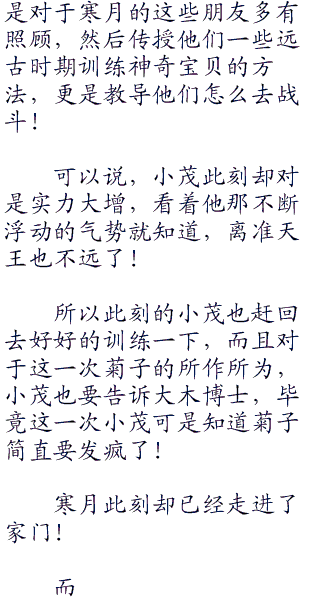 是对于寒月的这些朋友多有
照顾，然后传授他们一些远
古时期训练神奇宝贝的方
法，更是教导他们怎么去战
斗！
可以说，小茂此刻却对
是实力大增，看着他那不断
浮动的气势就知道，离准天
王也不远了！
所以此刻的小茂也赶回
去好好的训练一下，而且对
于这一次菊子的所作所为，
小茂也要告诉大木博士，毕
竟这一次小茂可是知道菊子
简直要发疯了！
寒月此刻却已经走进了
家门！
而